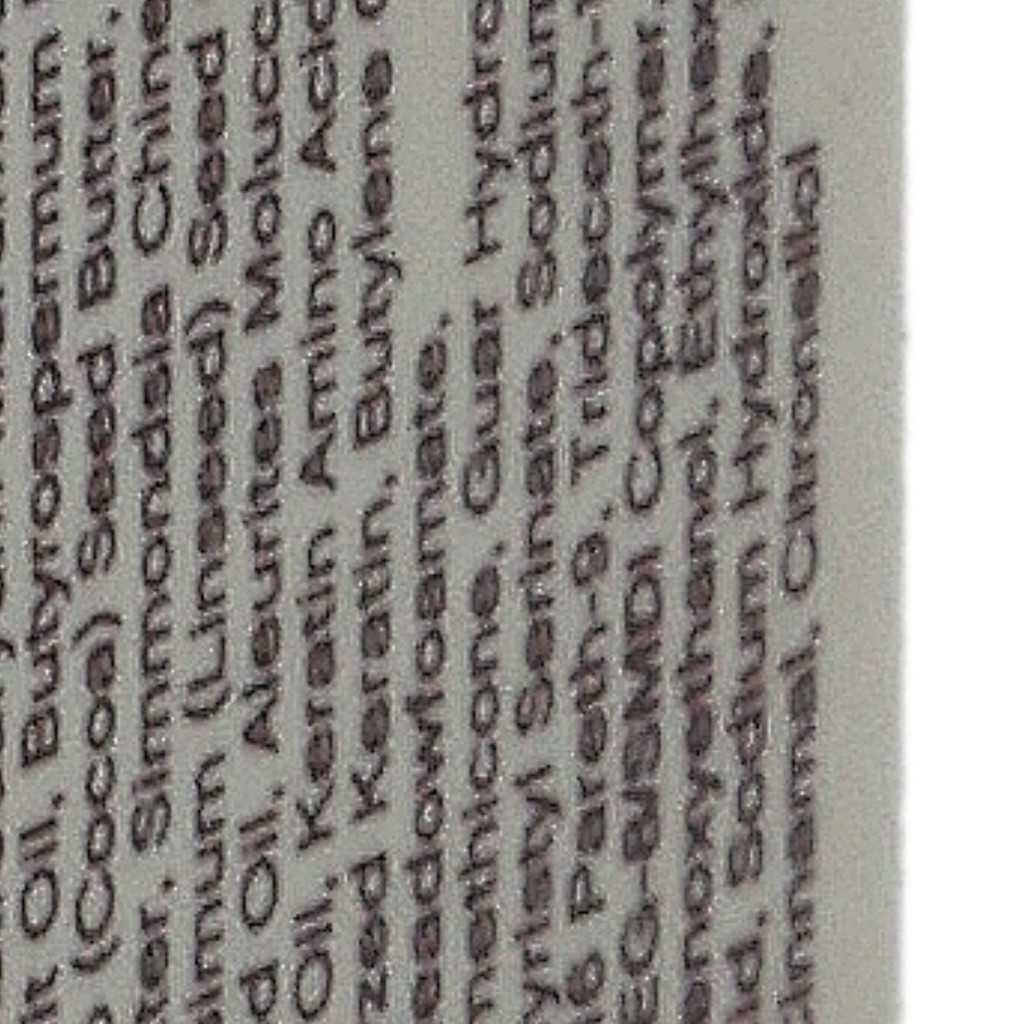 Oil, Butyrospermum
(Cocoa) Seed Butter,
Simmondsia Chine
(Lineseed) Seed
Oil, Aleurites Molucc
Oil, Keratin Amino Acid
zed Keratin, Butylene
eadowfoamate,
methicone, Guar Hydro
yristatyl Serinate, Sodium
16 Pareth-9, Trideceth-
EG-8/SMDI Copolymer,
enoxyethanol, Ethylhex
id, Sodium Hydroxide,
cinnamal, Citronellol